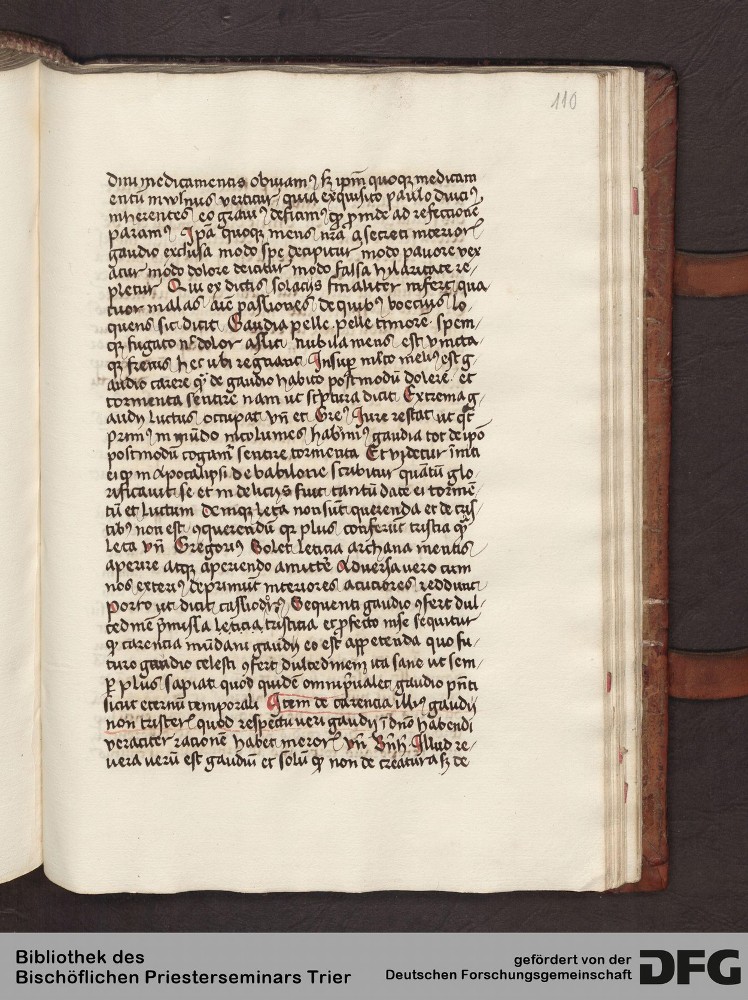 110
diu medicamentis obuiam⁹ sz ipm̄ quoqꝫ medicam
entū in vlnus vertitur quia exquisito paulo diuci⁹
inherentes eo graui⁹ deficim⁹ qꝫ ꝓ inde ad refectionē
param⁹ Ipā quoqꝫ mens nr̄a a secreti interior
gaudio exclusa modo spe decipitur modo pauore vex
atur modo dolore deicitur modo falsa hylaritate re-
pletur Qui ex dictis solacijs finaliter infert qua
tuor malas aīe passiones de quib⁹ boecius lo
quens sic dicit Gaudia pelle pelle timorē spem-
qꝫ fugato nͨ dolor assit nubila mens est vincta-
qꝫ frenis hec ubi regnant Insuꝑ mlto meli⁹ est g-
audio carere qͣꝫ de gaudio habito postmodū dolere et
tormenta sentire nam ut scptura dicit Extrema g-
audij luctus occupat vn̄ et Gre⁹ Iure restat ut qͥ
prius in mūdo incolumes habuim⁹ gaudia tot de ip̄o
postmodū cogam̄ sentire tormenta Et videtur īniti
ei qꝫ in apocalipsi de babilone scribitur quātū glo-
rificauit se et in delicijs fuit tantū date ei tormē-
tū et luctum deniqꝫ leta non sūt querenda et de tris
tib⁹ non est ꝯquerendū qꝛ plus conferūt tristia qͣꝫ
leta vn̄ Gregori⁹ Solet leticia archana mentis
aperire atqꝫ aperiendo amittē Aduersa vero cum
nos exteri⁹ deprimūt interiores acutiores reddunt
Porro ut dicit cassiodor⁹ Sequenti gaudio ꝯfert dul-
cedinē p̄missa leticia tristitia et ꝓfecto inde sequitur
qꝫ carencia mūdani gaudij eo est appetenda quo fu-
turo gaudio celesti ꝯfert dulcedinem ita sane ut sem-
ꝑ plus sapiat quod quidē omni p̄ualet gaudio pn̄ti
sicut eternū temporali Item de carencia illi⁹ gaudij
non tristeris quod respectu veri gaudij ī dn̄o habendi
veraciter rationē habet meroris vn̄ Bn̄h Illud re-
vera verū est gaudiū et solū qꝫ non de creatura sz de
Bibliothek des
Bischöflichen Priesterseminars Trier
gefördert von der
Deutschen Forschungsgemeinschaft
DFG